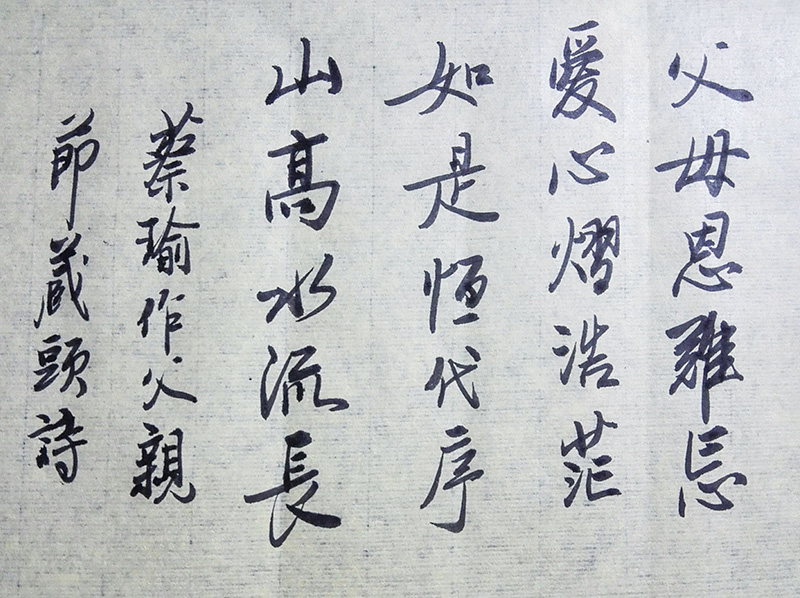 父母恩難忘
愛心熠浩茫
如是恒代序
山高水流長
蔡瑜作父親
節藏頭詩